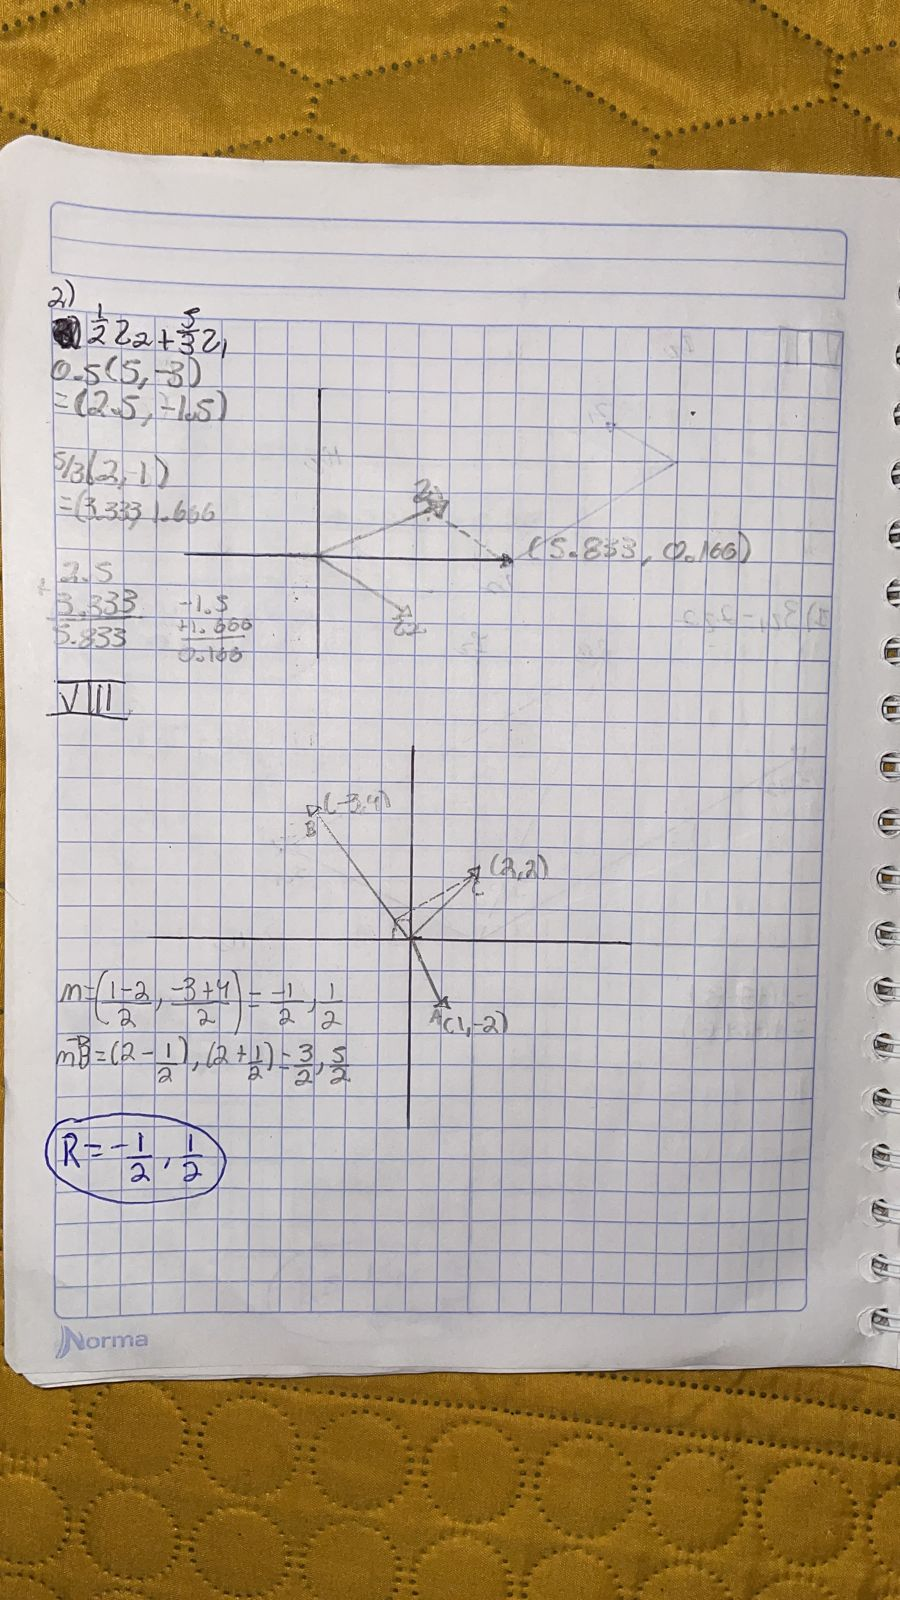 2)
1/2 z2 + 5/3 z1
0.5(5, -3)
=(2.5, -1.5)
5/3(2, 1)
=(3.333, 1.666
+ 2.5
3.333
5.833
-1.5
+1.666
0.166
z2
(5.833, 0.166)
VIII
(-3,4)
B
(2,2)
C
A(1,-2)
m=(1-2/2, -3+4/2)= -1/2, 1/2
mB=(2-1/2),(2+1/2)=3/2,5/2
R=-1/2, 1/2
Norma